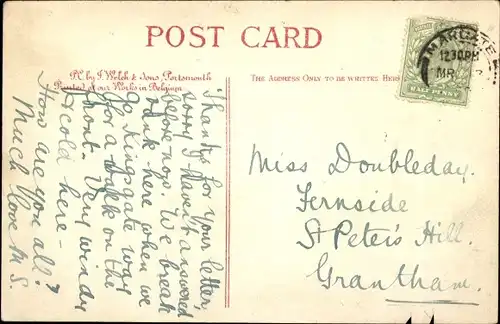 POST CARD
P.C. by F. Welch & Sons, Portsmouth
Printed at our Works in Belgium
THE ADDRESS ONLY TO BE WRITTEN HERE
MARGATE
12.30 PM
MR
HALF PENNY
Thanks for your letter,
sorry I haven't answered
before now. We break
here when we
go Kingsgate way
for a walk on the
front. Very windy
& cold here –
How are you all?
Much love M.S.
Miss Doubleday.
Fernside
St Peter's Hill.
Grantham.